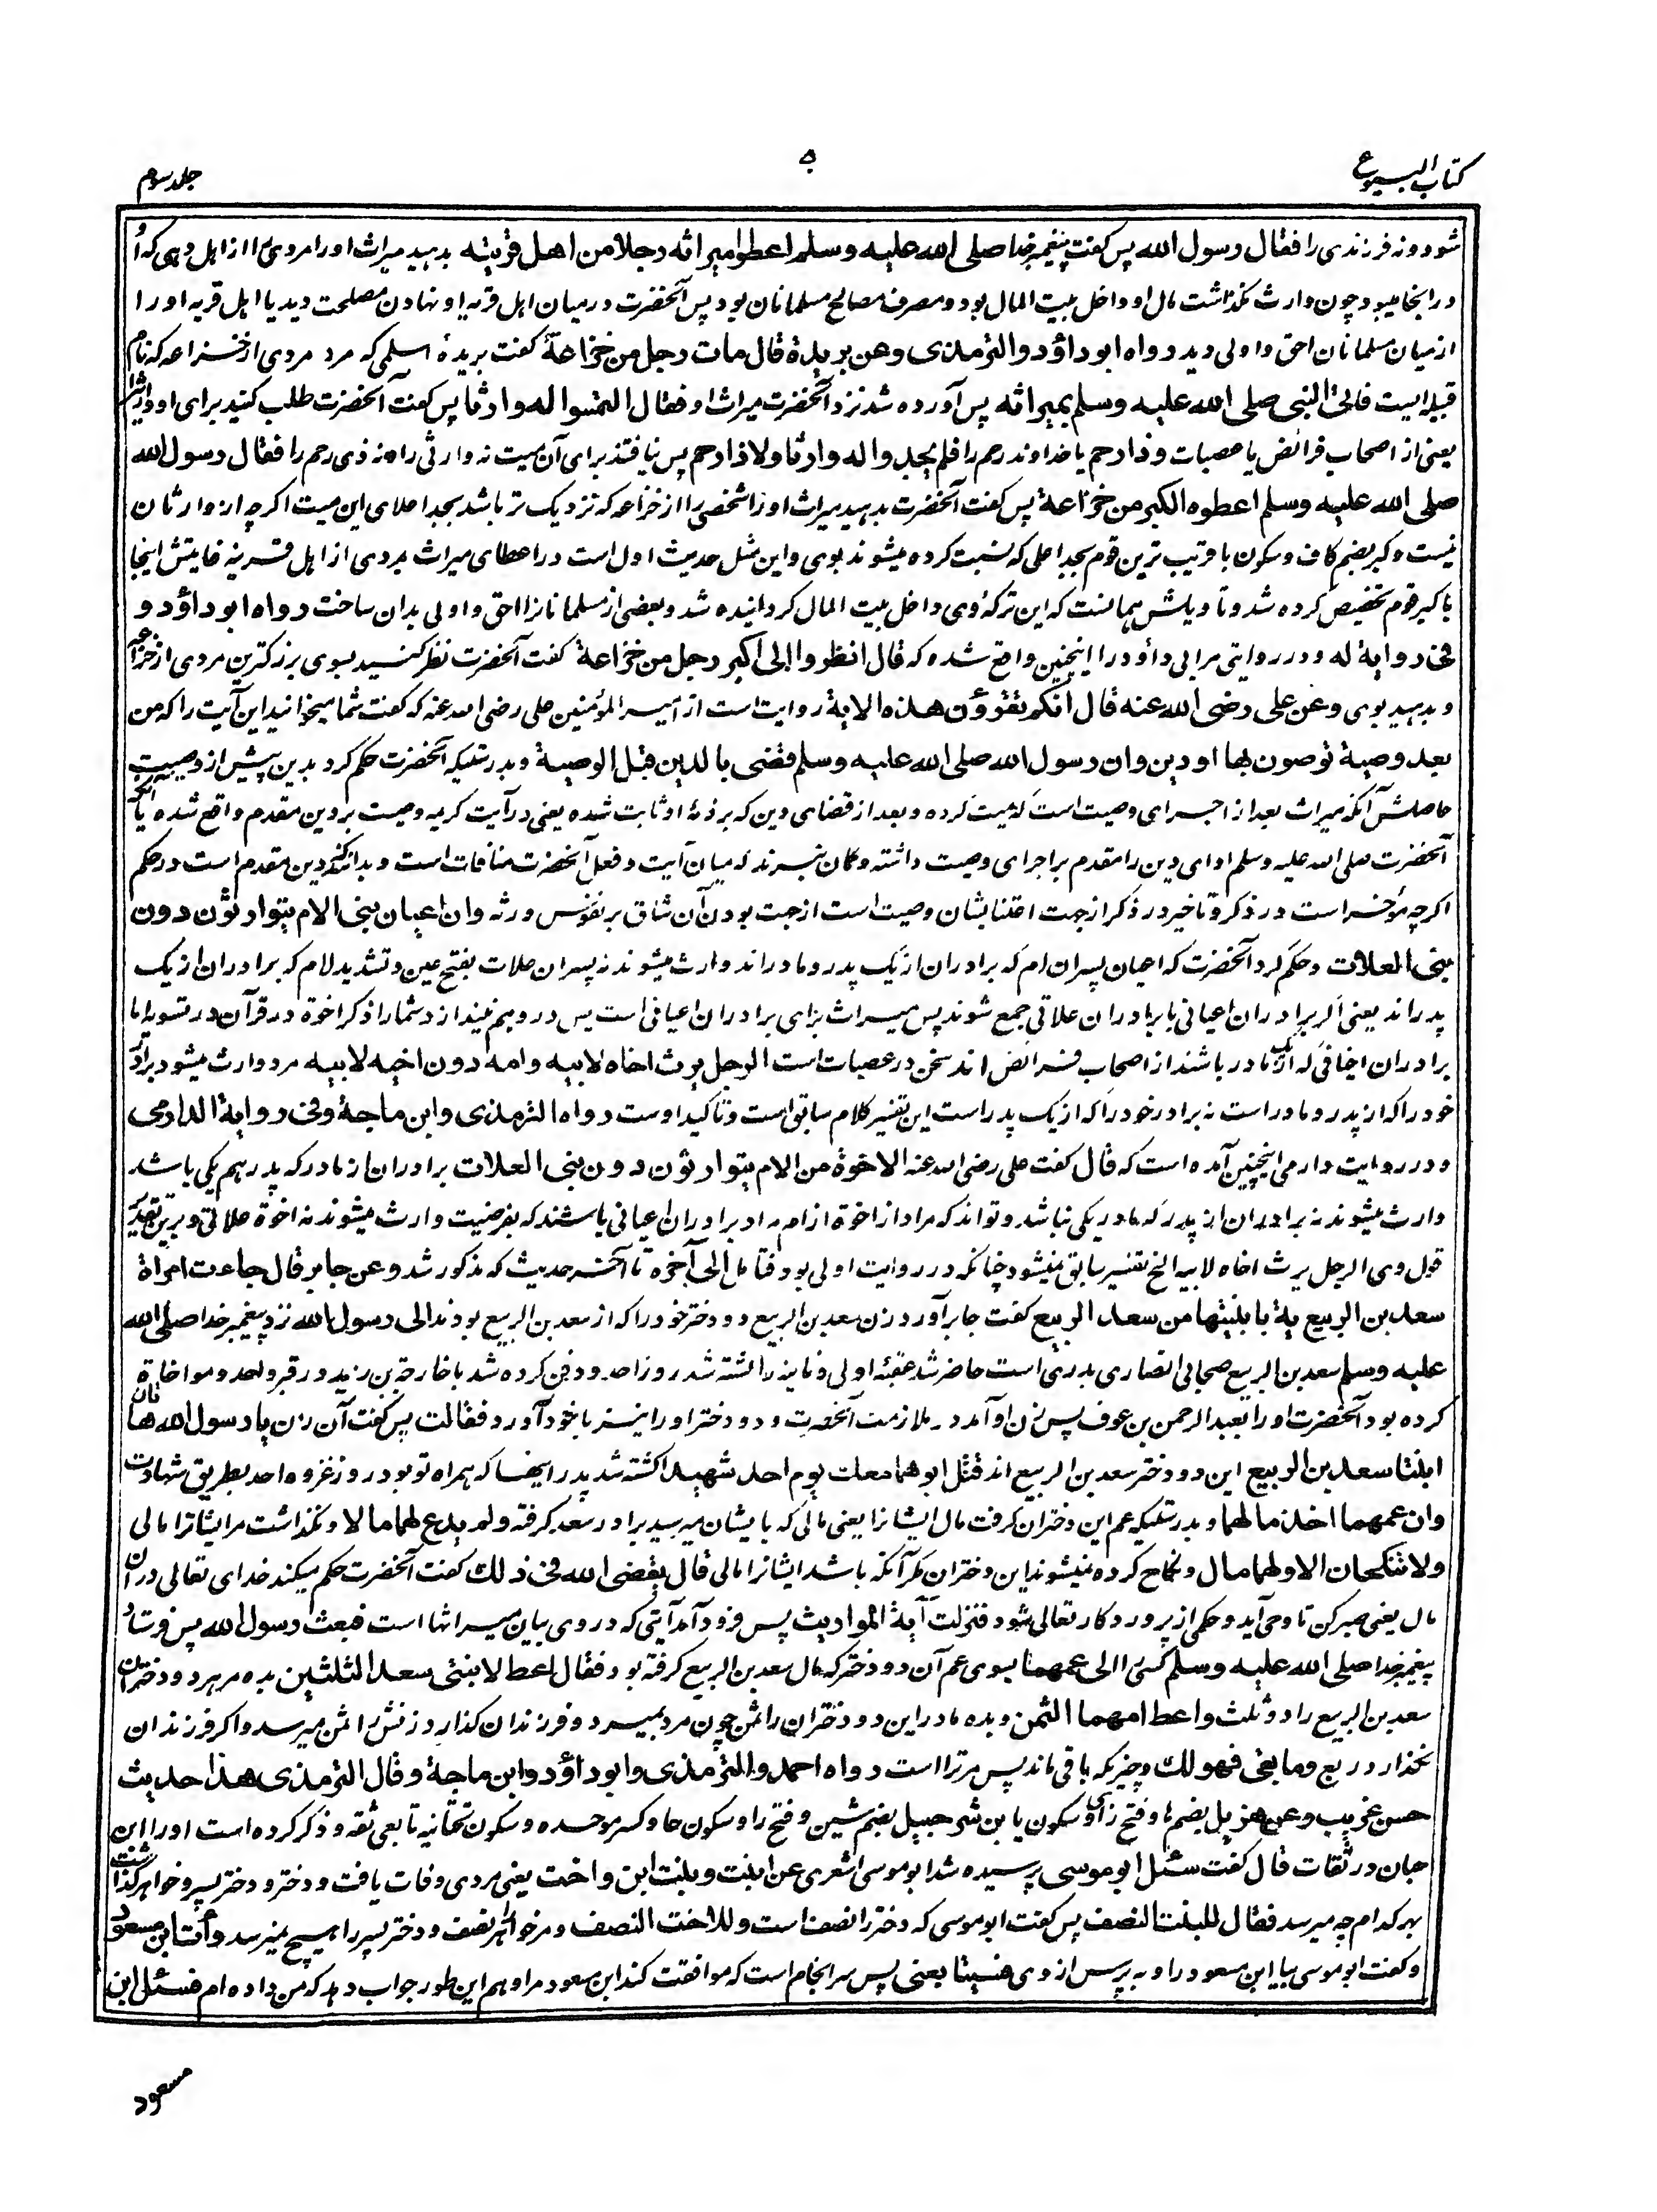 كتاب البيوع
۵
جلد سوم
شود و نه فرزندی را فقال رسول الله پس گفت پیغمبر خدا صلی الله علیه وسلم اعطوا میراثه رجلا من اهل قریته بدهید میراث او را مردی را از اهل دهی که او
در انجا میبود چون وارث نگذاشت مال او داخل بیت المال بود و مصرف مصالح مسلمانان بود پس آنحضرت در میان اهل قریه او نهادن مصلحت دید یا اهل قریه او را
از میان مسلمانان احق و اولی دید رواه ابوداؤد والترمذی وعن بریدة قال مات رجل من خزاعة گفت بریدهٔ اسلمی که مرد مردی از خزاعه که نام
قبیله ایست فاتی النبی صلی الله علیه وسلم بمیراثه پس آورده شد نزد آنحضرت میراث او فقال التمسوا له وارثا پس گفت آنحضرت طلب کنید برای او وارثی را
یعنی از اصحاب فرائض یا عصبات وذا رحم یا خداوند رحم را فلم یجدوا له وارثا ولا ذا رحم پس نیافتند برای آن میت نه وارثی را و نه ذی رحم را فقال رسول الله
صلی الله علیه وسلم اعطوه الکبر من خزاعة پس گفت آنحضرت بدهید میراث او را شخصی را از خزاعه که نزدیک تر باشد بجد اعلای این میت اگرچه از وارثان
نیست و کبر بضم کاف و سکون با قریب ترین قوم بجد اعلی که نسبت کرده میشوند بوی و این مثل حدیث اول است در اعطای میراث بمردی از اهل قریه غایتش اینجا
با کبر قوم تخصیص کرده شد و تاویلش همانست که این ترکهٔ وی داخل بیت المال گردانیده شد و بعضی از مسلمانان را احق و اولی بدان ساخت رواه ابوداؤد و
فی روایة له و در روایتی مر ابی داؤد را اینچنین واقع شده که قال انظروا الی اکبر رجل من خزاعة گفت آنحضرت نظر کنید بسوی بزرگترین مردی از خزاعه
و بدهید بوی وعن علی رضی الله عنه قال انکم تقرؤن هذه الایة روایت است از امیر المؤمنین علی رضی الله عنه که گفت شما میخوانید این آیت را که من
بعد وصیة توصون بها او دین وان رسول الله صلی الله علیه وسلم قضی بالدین قبل الوصیة و بدرستیکه آنحضرت حکم کرد بدین پیش از وصیت
حاصلش آنکه میراث بعد از اجرای وصیت است که میت کرده و بعد از قضای دین که بر ذمهٔ او ثابت شده یعنی در آیت کریمه وصیت بر دین مقدم واقع شده با آنکه
آنحضرت صلی الله علیه وسلم ادای دین را مقدم بر اجرای وصیت داشته و گمان نبرند که میان آیت و فعل آنحضرت منافات است و بدانند که دین مقدم است در حکم
اگرچه مؤخر است در ذکر و تاخیر در ذکر از جهت اعتنا بشان وصیت است از جهت بودن آن شاق بر نفوس ورثه وان اعیان بنی الام یتوارثون دون
بنی العلات و حکم کرد آنحضرت که اعیان پسران ام که برادران از یک پدر و مادر اند وارث میشوند نه پسران علات بفتح عین و تشدید لام که برادران از یک
پدر اند یعنی اگر برادران اعیانی با برادران علاتی جمع شوند پس میراث برای برادران اعیانی است پس در وهم نیندازد شما را ذکر اخوة در قرآن در تسویه اما
برادران اخیافی که از یک مادر باشند از اصحاب فرائض اند سخن در عصبات است الرجل یرث اخاه لابیه وامه دون اخیه لابیه مرد وارث میشود برادر
خود را که از پدر و مادر است نه برادر خود را که از یک پدر است این تفسیر کلام سابق است و تاکید اوست رواه الترمذی وابن ماجة وفی روایة الدارمی
و در روایت دارمی اینچنین آمده است که قال گفت علی رضی الله عنه الاخوة من الام یتوارثون دون بنی العلات برادران از مادر که پدر هم یکی باشد
وارث میشوند نه برادران از پدر که مادر یکی نباشد و تواند که مراد از اخوة از ام برادران اعیانی باشند که بفرضیت وارث میشوند نه اخوة علاتی و برین تقدیر
قول وی الرجل یرث اخاه لابیه الخ تفسیر سابق نمیشود چنانکه در روایت اولی بود فتامل الی آخره تا آخر حدیث که مذکور شد وعن جابر قال جاءت امراة
سعد بن الربیع به بابنتیها من سعد الربیع گفت جابر آورد زن سعد بن الربیع دو دختر خود را که از سعد بن الربیع بودند الی رسول الله نزد پیغمبر خدا صلی الله
علیه وسلم سعد بن الربیع صحابی انصاری بدری است حاضر شد عقبهٔ اولی و ثانیه را کشته شد روز احد و دفن کرده شد با خارجة بن زید در قبر واحد و مواخاة
کرده بود آنحضرت او را بعبد الرحمن بن عوف پس زن او آمد در ملازمت آنحضرت و دو دختر او را نیز با خود آورد فقالت پس گفت آن زن یا رسول الله هاتان
ابنتا سعد بن الربیع این دو دختر سعد بن الربیع اند قتل ابوهما معک یوم احد شهیدا کشته شد پدر اینها که همراه تو بود روز غزوه احد بطریق شهادت
وان عمهما اخذ مالهما و بدرستیکه عم این دختران گرفت مال ایشانرا یعنی مالی که بایشان میرسید برادر سعد گرفته ولم یدع لهما مالا و نگذاشت مر ایشانرا مالی
ولا تنکحان الا ولهما مال و نکاح کرده نمیشوند این دختران مگر آنکه باشد ایشانرا مالی قال یقضی الله فی ذلک گفت آنحضرت حکم میکند خدای تعالی در آن
مال یعنی صبر کن تا وحی آید و حکمی از پروردگار تعالی شود فنزلت آیة المواریث پس فرود آمد آیتی که در وی بیان میراثها است فبعث رسول الله پس فرستاد
پیغمبر خدا صلی الله علیه وسلم کسی را الی عمهما بسوی عم آن دو دختر که مال سعد بن الربیع گرفته بود فقال اعط لابنتی سعد الثلثین بده مر هر دو دختران
سعد بن الربیع را دو ثلث واعط امهما الثمن و بده مادر این دو دختران را ثمن چون مرد بمیرد و فرزندان گذارد زنش را ثمن میرسد و اگر فرزندان
نگذارد ربع وما بقی فهو لک و چیزیکه باقی ماند پس مر ترا است رواه احمد والترمذی وابوداؤد وابن ماجة وقال الترمذی هذا حدیث
حسن غریب وعن هزیل بضم ها و فتح زای و سکون یا بن شرحبیل بضم شین و فتح را و سکون حا و کسر موحده و سکون تحتانیه تابعی ثقه و ذکر کرده است او را ابن
حبان در ثقات قال گفت سئل ابوموسی پرسیده شد ابوموسی اشعری عن ابنت وبنت ابن واخت یعنی مردی وفات یافت و دختر و دختر پسر و خواهر گذاشت
بهر کدام چه میرسد فقال للبنت النصف پس گفت ابوموسی که دختر را نصف است وللاخت النصف و مر خواهر را نصف و دختر پسر را هیچ نمیرسد وأت ابن مسعود
و گفت ابوموسی بیا ابن مسعود را و به پرس از وی فسیتابعنی پس سر انجام است که موافقت کند ابن مسعود مرا و هم این طور جواب دهد که من داده ام فسئل ابن
مسعود